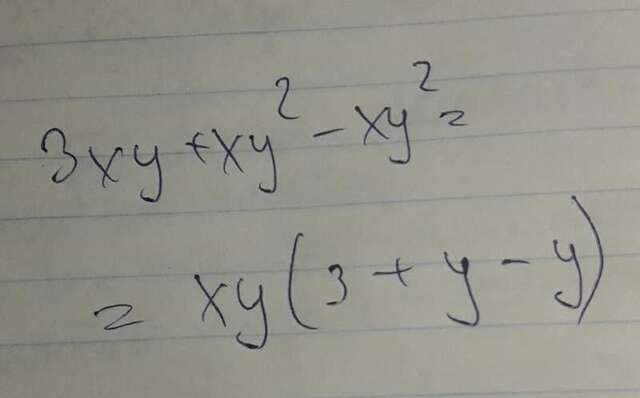 3xy+xy² - xy² =
= xy(3 + y - y)